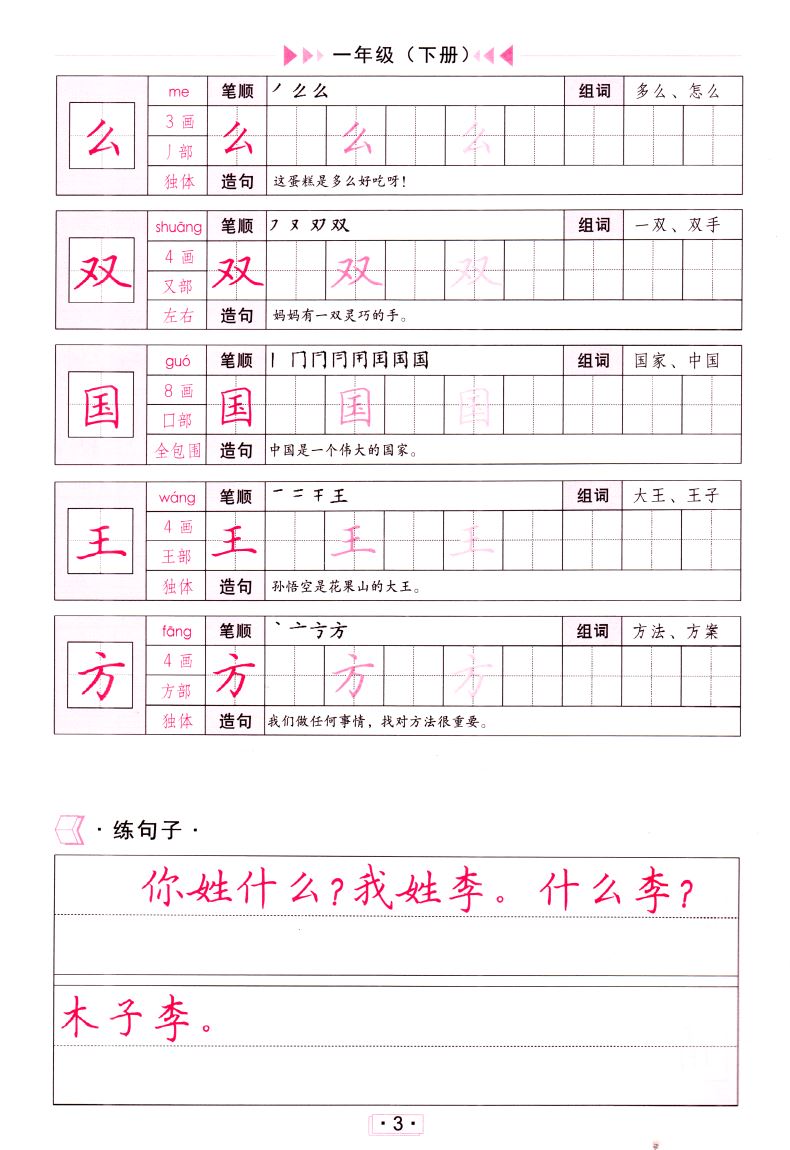 一年级（下册）
me 笔顺 丿 厶 么 组词 多么、怎么
么 3 画 么 么 么
丿部
独体 造句 这蛋糕是多么好吃呀!
shuāng 笔顺 双 组词 一双、双手
双 4 画 双 双 双
又部
左右 造句 妈妈有一双灵巧的手。
guó 笔顺 丨 冂 国 组词 国家、中国
国 8 画 国 国 国
囗部
全包围 造句 中国是一个伟大的国家。
wáng 笔顺 一 二 干 王 组词 大王、王子
王 4 画 王 王 王
王部
独体 造句 孙悟空是花果山的大王。
fāng 笔顺 丶 亠 方 组词 方法、方案
方 4 画 方 方 方
方部
独体 造句 我们做任何事情，找对方法很重要。
·练句子·
你姓什么?我姓李。什么李?
木子李。
·3·